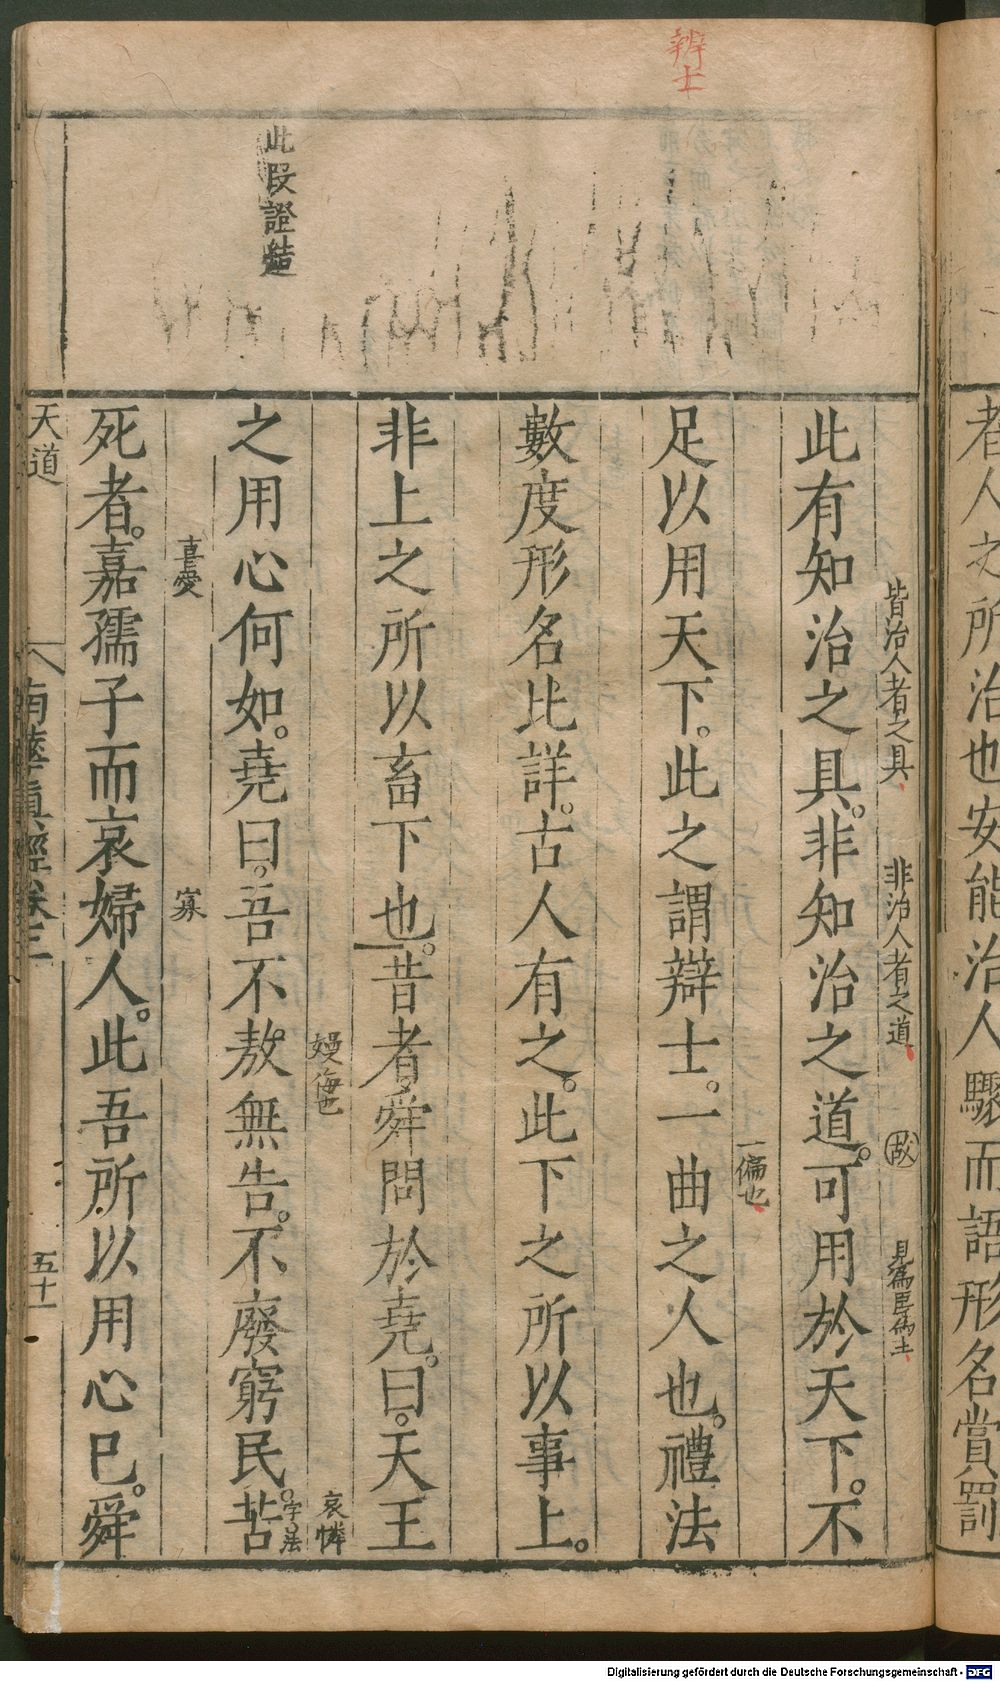 者人之所治也安能治人驟而語形名賞罰
辨士
皆治人者之具
非治人者之道
故
此有知治之具。非知治之道。可用於天下。不
一偏也
足以用天下。此之謂辯士。一曲之人也。禮法
數度形名比詳。古人有之。此下之所以事上。
非上之所以畜下也。昔者舜問於堯。曰。天王
嫚侮也
哀憐
此段證結
之用心何如。堯曰。吾不敖無告。不廢窮民。苦
字法
喜愛
寡
死者。嘉孺子而哀婦人。此吾所以用心已。舜
天道
南華真經卷三
五十一
Digitalisierung gefördert durch die Deutsche Forschungsgemeinschaft - DFG